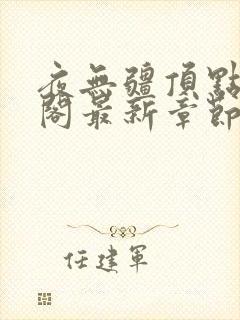 夜無疆頂點
閣最新章節
任建軍